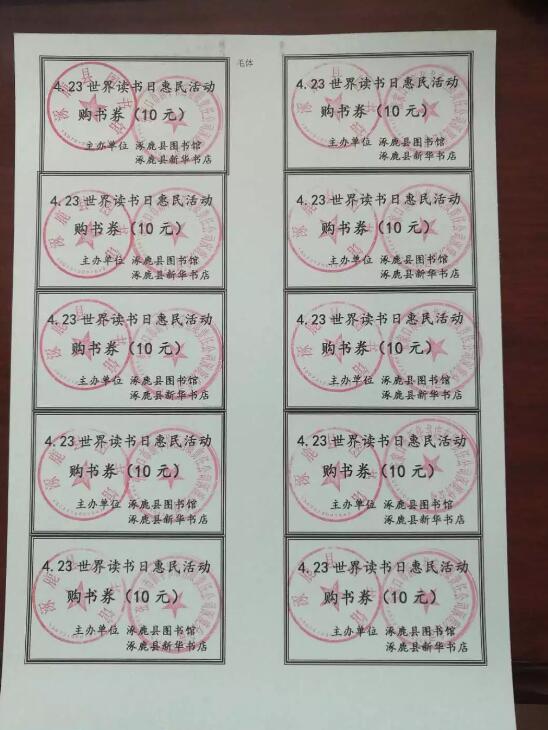 毛体
4.23世界读书日惠民活动
购书券（10元）
主办单位 涿鹿县图书馆
涿鹿县新华书店
4.23世界读书日惠民活动
购书券（10元）
主办单位 涿鹿县图书馆
涿鹿县新华书店
4.23世界读书日惠民活动
购书券（10元）
主办单位 涿鹿县图书馆
涿鹿县新华书店
4.23世界读书日惠民活动
购书券（10元）
主办单位 涿鹿县图书馆
涿鹿县新华书店
4.23世界读书日惠民活动
购书券（10元）
主办单位 涿鹿县图书馆
涿鹿县新华书店
4.23世界读书日惠民活动
购书券（10元）
主办单位 涿鹿县图书馆
涿鹿县新华书店
4.23世界读书日惠民活动
购书券（10元）
主办单位 涿鹿县图书馆
涿鹿县新华书店
4.23世界读书日惠民活动
购书券（10元）
主办单位 涿鹿县图书馆
涿鹿县新华书店
4.23世界读书日惠民活动
购书券（10元）
主办单位 涿鹿县图书馆
涿鹿县新华书店
4.23世界读书日惠民活动
购书券（10元）
主办单位 涿鹿县图书馆
涿鹿县新华书店